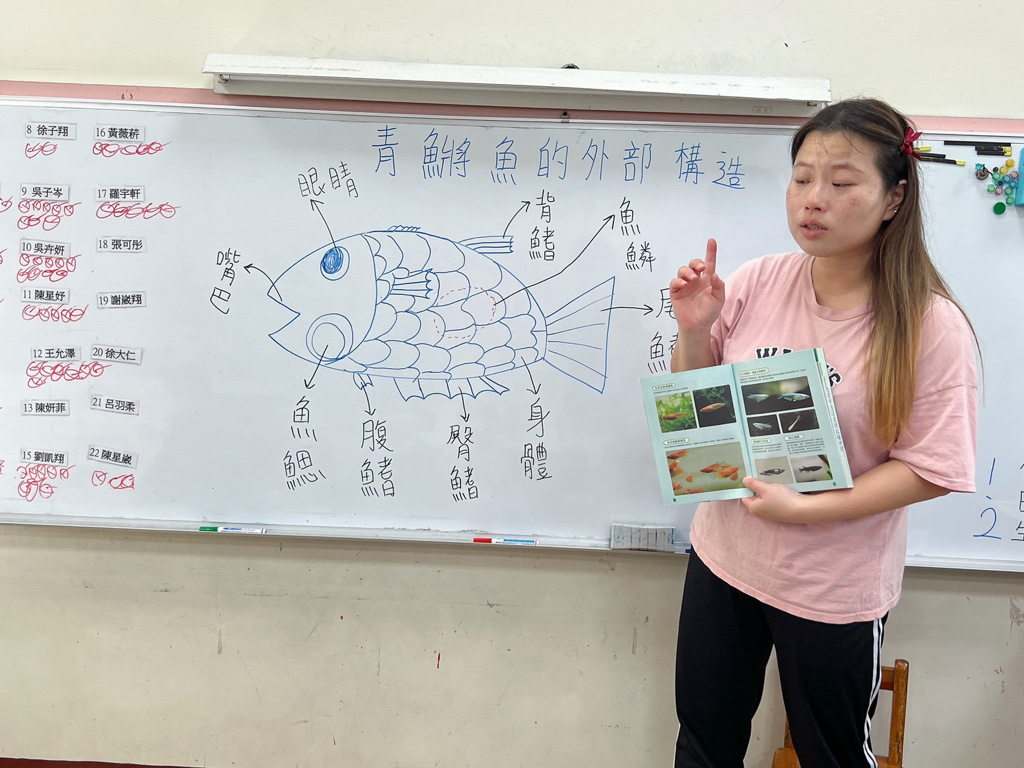 青鱂魚的外部構造
8 徐子翔
16 黃薇
9 吳子岑
17 羅宇軒
10 吳卉妍
18 張可彤
11 陳星妤
19 謝崴翔
12 王允澤
20 徐大仁
13 陳妍菲
21 呂羽柔
15 劉凱翔
22 陳星崴
眼睛
嘴巴
背鰭
魚鱗
魚鰓
腹鰭
臀鰭
身體
1.
2.